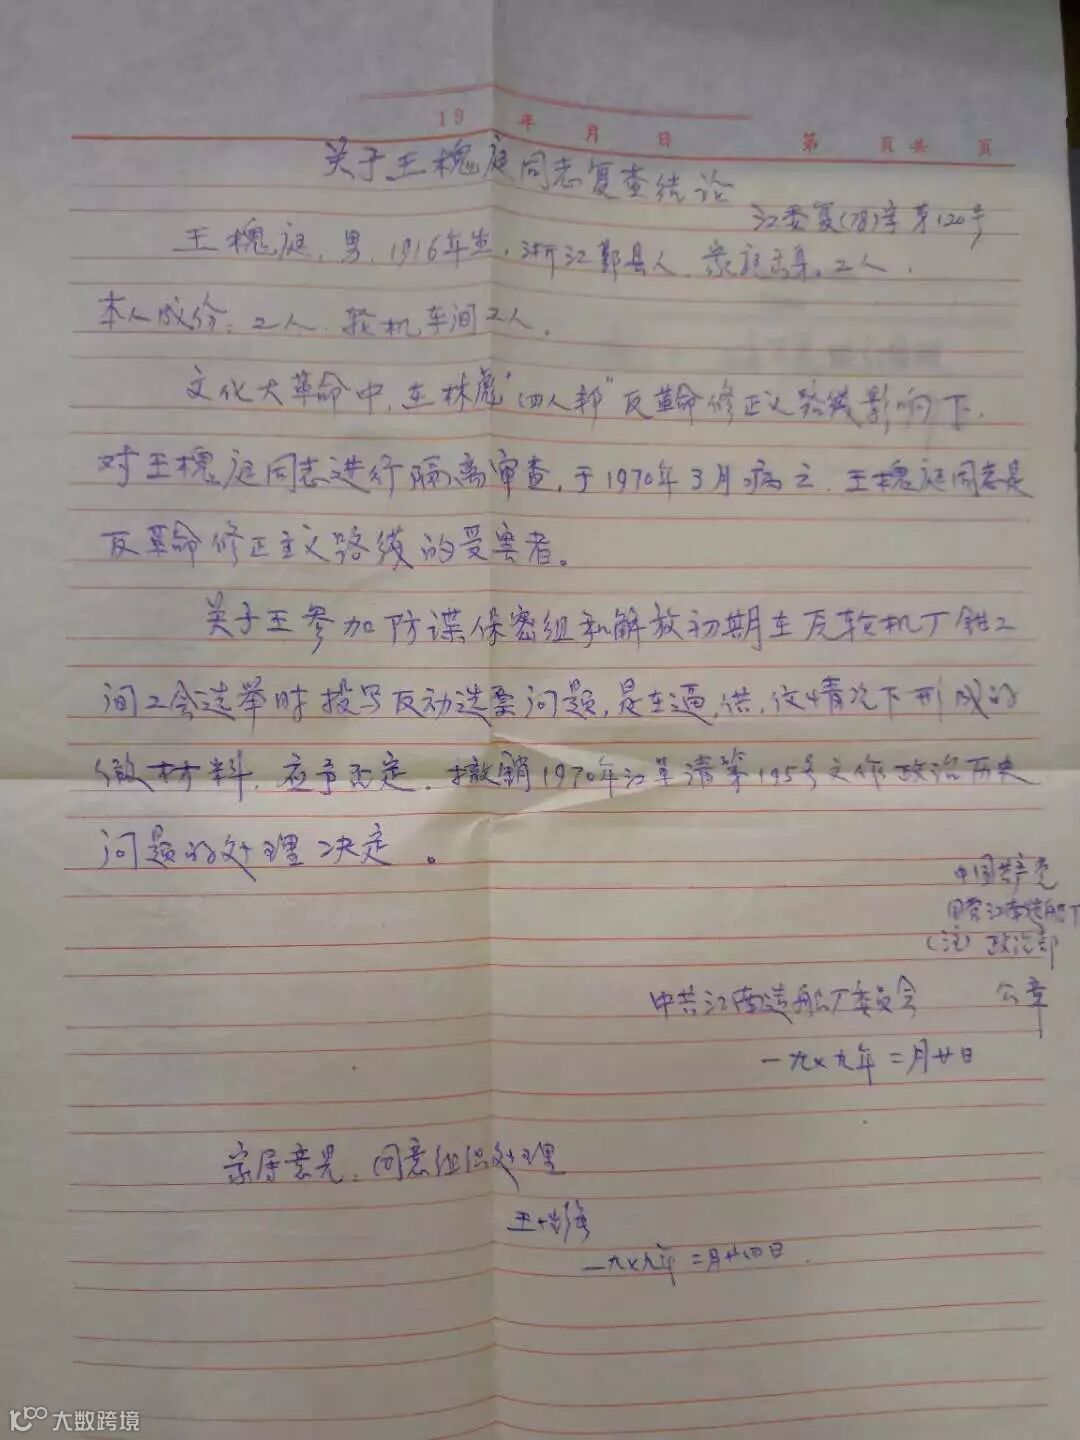 19 年 月 日 第 页共 页
关于王槐庭同志复查结论
江委复(78)字第120号
王槐庭,男,1916年生,浙江鄞县人,家庭出身:工人,
本人成份:工人,轮机车间工人。
文化大革命中,在林彪"四人邦"反革命修正义路线影响下,
对王槐庭同志进行隔离审查,于1970年3月病亡,王槐庭同志是
反革命修正主义路线的受害者。
关于王参加防谍保密组和解放初期在 轮机厂钳工
间工会选举时投写反动选票问题,是在逼、供、信情况下形成的
假材料,应予否定,撤销1970年江革清第195号文作政治历史
问题的处理决定。
中国共产党
国营江南造船厂
(注) 政治部
中共江南造船厂委员会 公章
一九七九年二月廿日
家属意见:同意组织处理
王
一九七九年二月廿四日
大数跨境